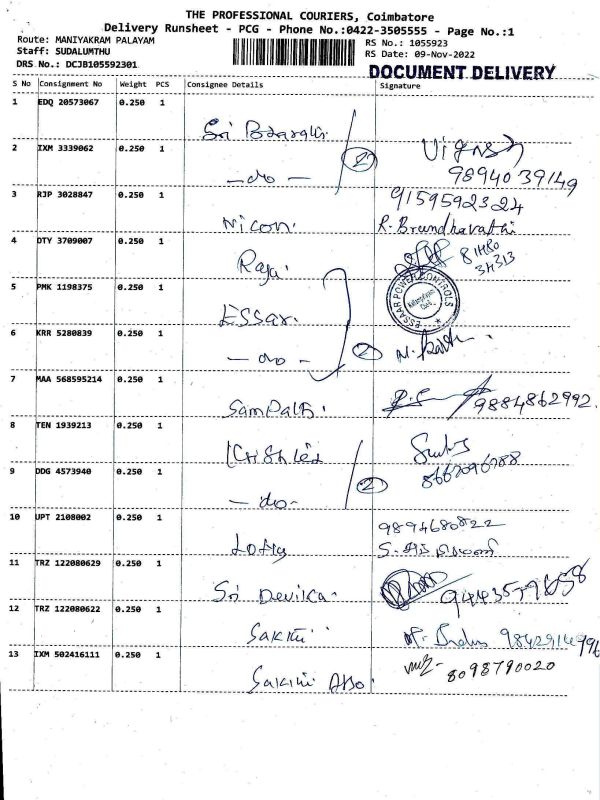 THE PROFESSIONAL COURIERS, Coimbatore
Delivery Runsheet - PCG - Phone No.:0422-3505555 - Page No.:1
Route: MANIYAKRAM PALAYAM
Staff: SUDALUMTHU
DRS No.: DCJB105592301
RS No.: 1055923
RS Date: 09-Nov-2022
DOCUMENT DELIVERY
S No Consignment No Weight PCS Consignee Details Signature
1 EDQ 20573067 0.250 1
Sri
2 IXM 3339062 0.250 1
- do - 2 Vignesh
9894039149
3 RJP 3028847 0.250 1 9159592324
Nicon. R. Brundhavathi
4 DTY 3709007 0.250 1
Raja.
5 PMK 1198375 0.250 1
Essar. ESSAAR POWER CONTROLS
6 KRR 5280839 0.250 1
- do - 2
7 MAA 568595214 0.250 1
Sampath. 9884862992.
8 TEN 1939213 0.250 1
9 DDG 4573940 0.250 1
- do - 2
10 UPT 2108002 0.250 1 9894680822
Lotty
11 TRZ 122080629 0.250 1
Sri Devika.
12 TRZ 122080622 0.250 1
Sakthi
13 IXM 502416111 0.250 1 8098790020
Sakthi